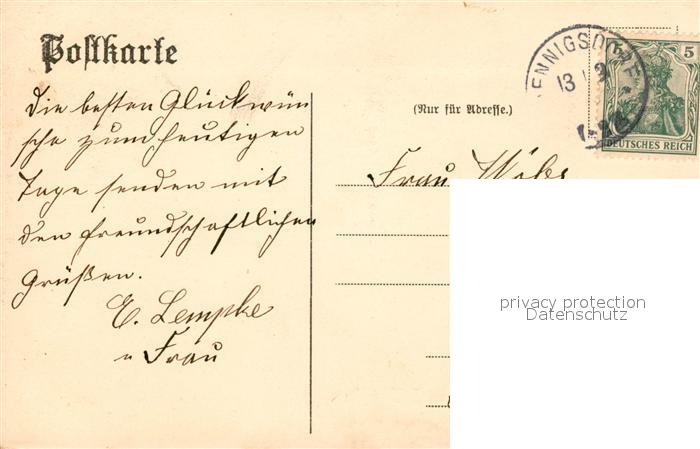 Postkarte
ENNIGSDORF
13
5
DEUTSCHES REICH
(Nur für Adresse.)
Die besten Glückwün
sche zum heutigen
Tage senden mit
den freundschaftlichen
Grüßen.
E. Lempke
u Frau
Frau
privacy protection
Datenschutz